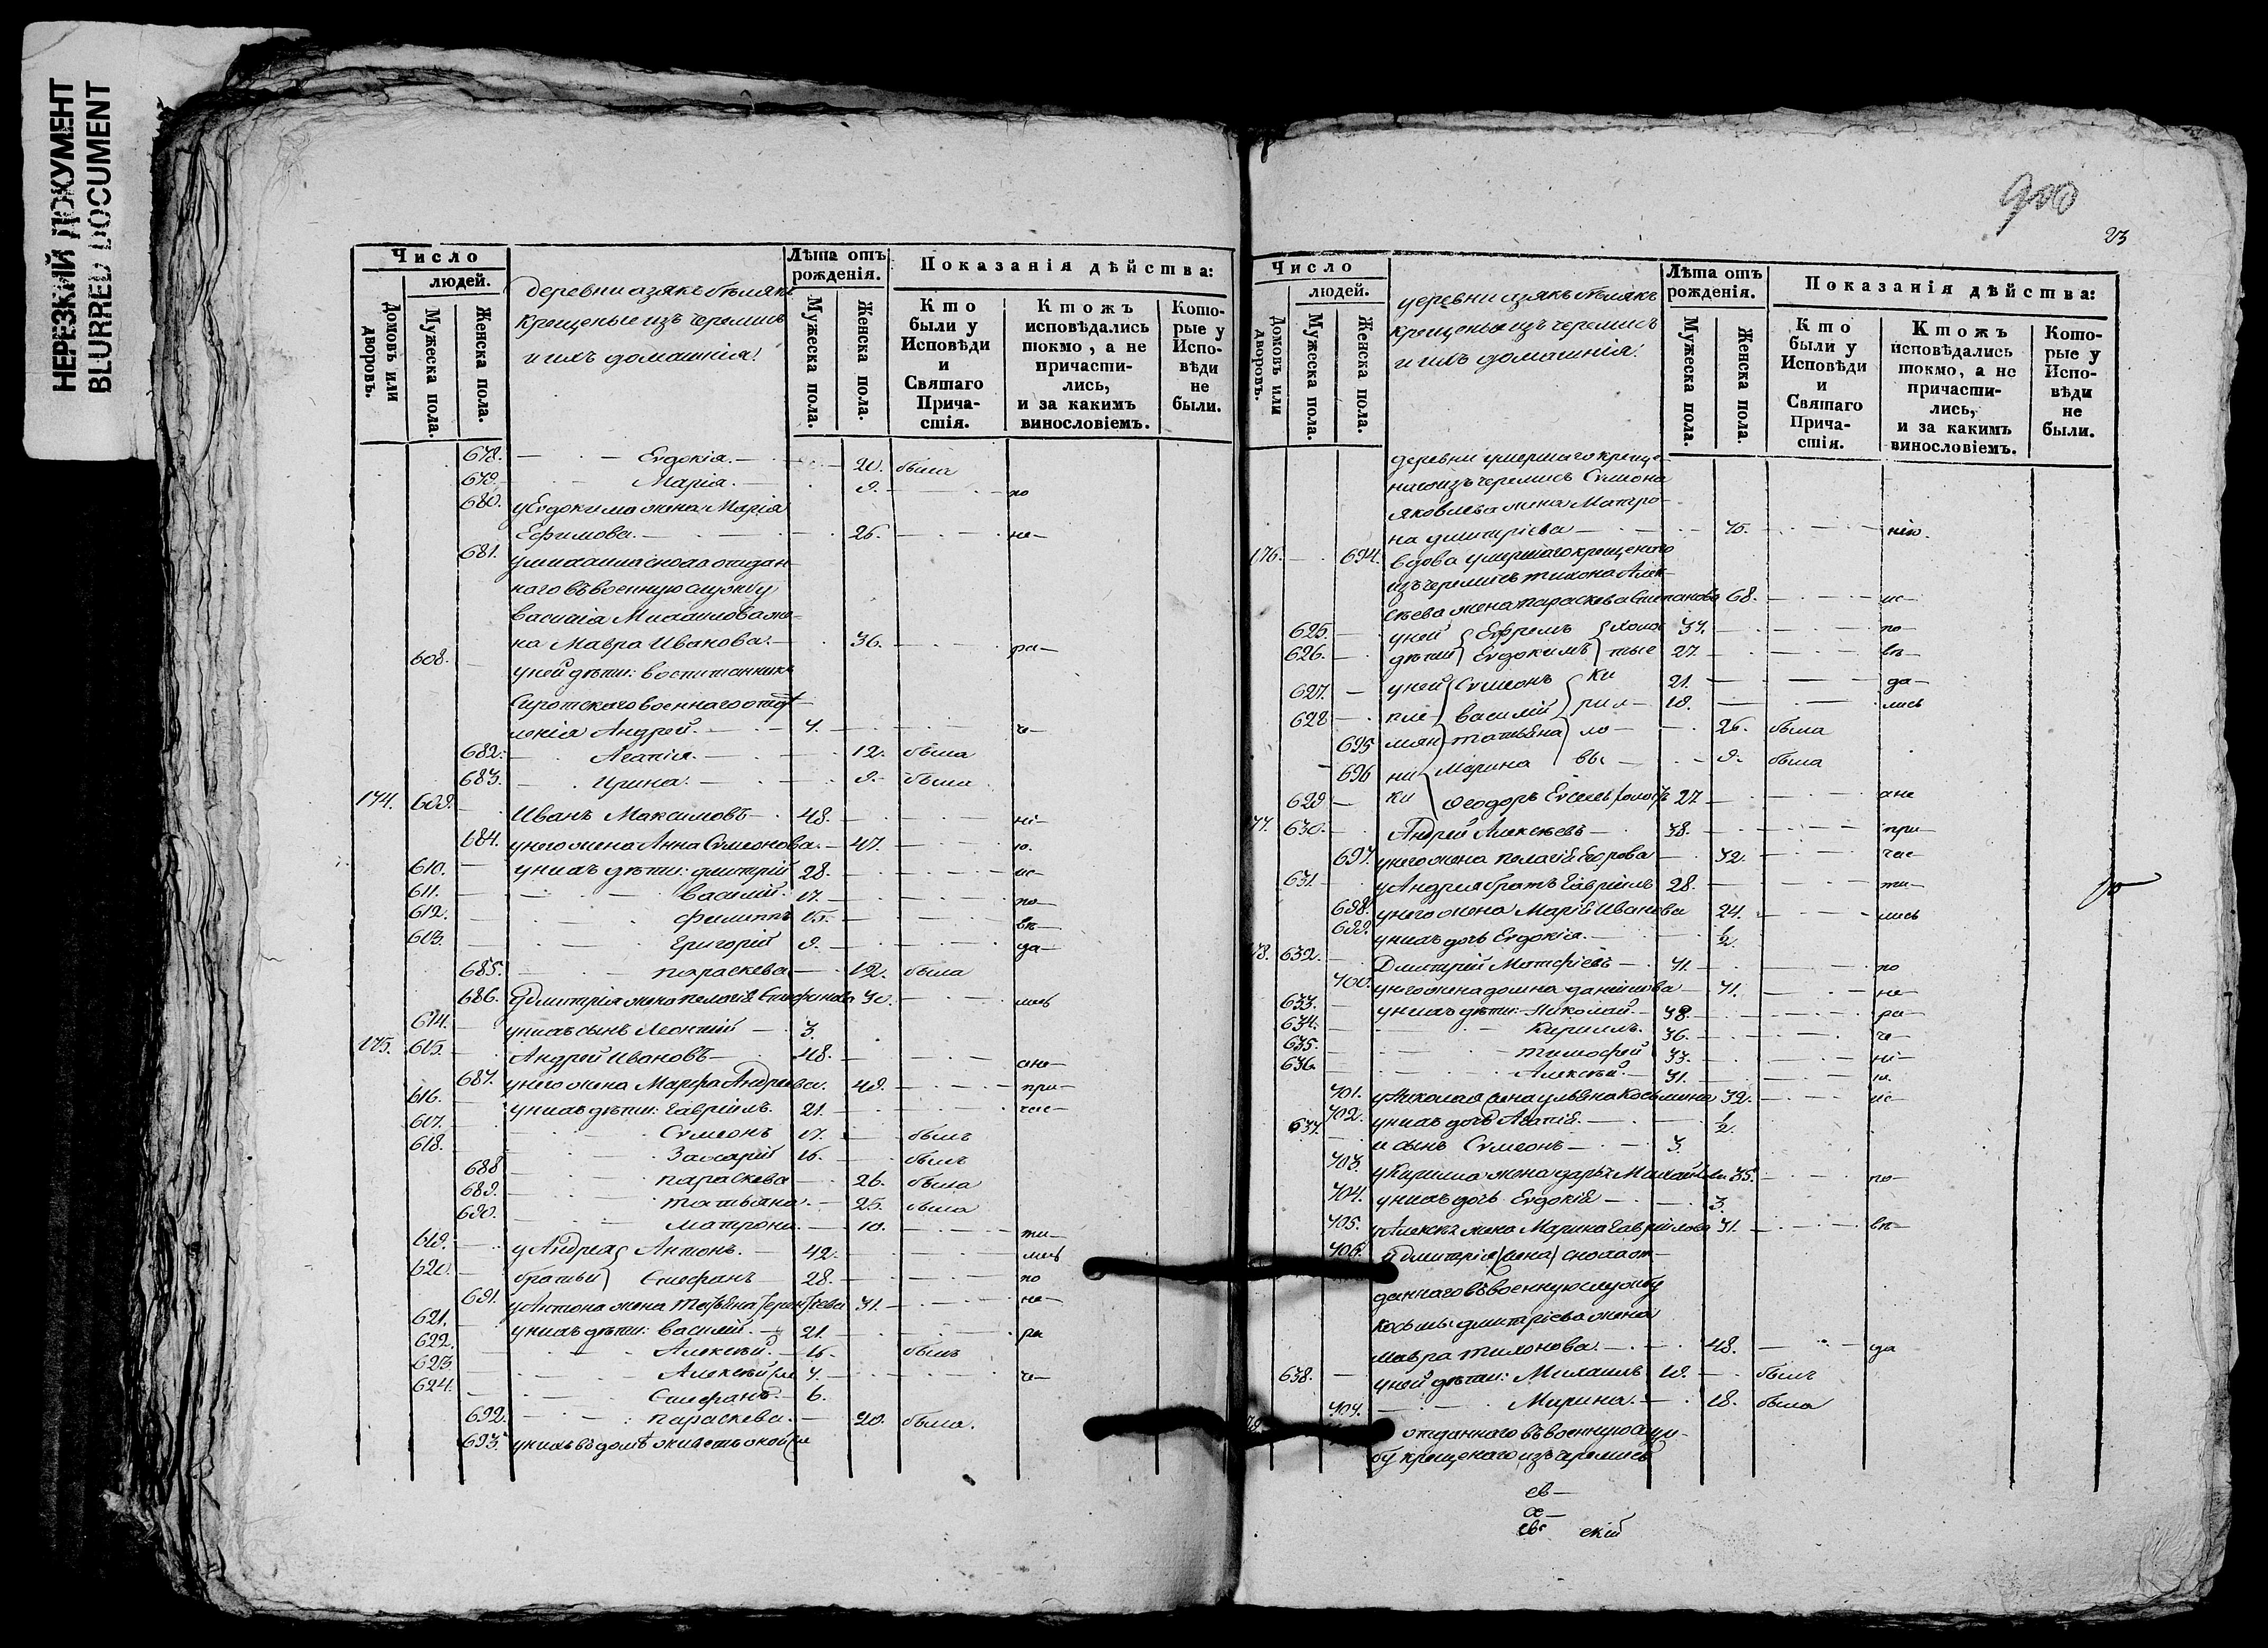 НЕРЕЗКИЙ ДОКУМЕНТ
BLURRED DOCUMENT
Число
людей.
Домовъ или дворовъ.
Мужеска пола.
Женска пола.
деревни азякъ бѣляка
крещеные изъ черемисъ
и ихъ домашнія:
Лѣта отъ рожденія.
Мужеска пола.
Женска пола.
Показанія дѣйства:
Кто были у Исповѣди и Святаго Причастія.
Ктожъ исповѣдались токмо, а не причастились, и за какимъ винословіемъ.
Которые у Исповѣди не были.
678. Евдокія. 20. была
679. Марія. 9. по
680. у Евдокима жена Марія
Ефимова. 26. не
681.
ного въ военную службу
василія Михаилова же-
на Мавра Иванова. 36. ра
608. у ней дѣти: воспитанникъ
Сиротскаго военнаго отдѣ-
ленія Андрей. ч
682. Агапія. 12. была
683. Ирина. 9. была
174. 609. Иванъ Максимовъ 48. ні
684. у него жена Анна Симеонова. 47. ю.
610. у нихъ дѣти: дмитрій 28. ис
611. василій. 17. по
612. филиппъ 15. вѣ
613. Григорій 9. да
685. параскева 12. была
686. у дмитрія жена пелагія Стефанова 30. лись
614. у нихъ сынъ Леонтій 3.
175. 615. Андрей Ивановъ 48. ане
687. у него жена Марфа Андреева. 49. при
616. у нихъ дѣти: Гавріилъ. 21. час
617. Симеонъ 17. былъ
618. Захарій 16. былъ
688 параскева 26. была
689. татьяна. 25. была
690. матрона. 10. ти
619. у Андрея Антонъ. 42. лись
620. братьи Стефанъ 28. по
691. у Антона жена Татьяна 31. не
621. у нихъ дѣти: василій. 21. ра
622. Алексѣй. 16. былъ
623. Алексѣй ч
624. Стефанъ. 6.
692. параскева. 20. была.
693. у нихъ въ домѣ живетъ
900
23
Число
людей.
Домовъ или дворовъ.
Мужеска пола.
Женска пола.
деревни азякъ бѣлякъ
крещеные изъ черемисъ
и ихъ домашнія:
Лѣта отъ рожденія.
Мужеска пола.
Женска пола.
Показанія дѣйства:
Кто были у Исповѣди и Святаго Причастія.
Ктожъ исповѣдались токмо, а не причастились, и за какимъ винословіемъ.
Которые у Исповѣди не были.
деревни умершаго креще-
наго изъ черемисъ Симеона
Яковлева жена Матро-
на дмитріева нію.
176. 694. вдова умершаго крещенаго
изъ черемисъ тихона Алек-
сѣева жена параскева Степанова 68. ис
625. у ней Ефремъ холос 37. по
626. дѣти Евдокимъ тые 27. вѣ
627. у ней Симеонъ Ки 21. да
628 пле василій рил 19. лись
695 мян татьяна ло 26. была
696 ни Марина вы 9. была
629 ки Ѳеодоръ 27. ане
77. 630. Андрей Алексѣевъ 38. при
697. у него жена пелагія Егорова 32. час
631. у Андрея братъ Гавріилъ 28. ти
698. у него жена Марія Иванова 24. лись
699. у нихъ дочь Евдокія. ½
78. 632. Дмитрій Матфіевъ по
700. у него жена домна данилова не
633. у нихъ дѣти: Николай. 38. ра
634. Кириллъ. 36. ч
635. тимофей 33. ні
636. Алексѣй. 31. ю.
701. у Николая жена ульяна Косьмина 32. ис
702. у нихъ дочь Агапія. ½
637. и сынъ Симеонъ 3.
703. у Кирилла жена дарья Михайлова 35. по
704. у нихъ дочь Евдокія 3.
705. у Алексѣя жена Марина Гавріилова 31. вѣ
706. у Дмитрія сноха от-
даннаго въ военную службу
Косьмы дмитріева жена
мавра тихонова. 48. да
638. у ней дѣти: Михаилъ 10. былъ
707. Марина. 18. была
отданнаго въ военную служ-
бу крещенаго изъ черемисъ